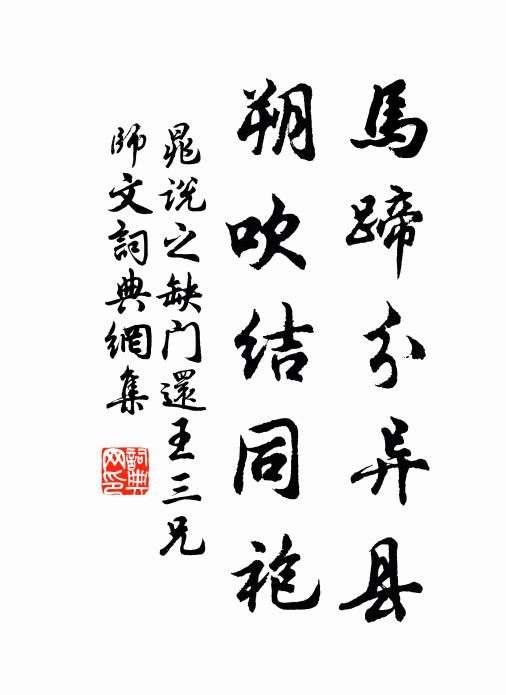 馬蹄分异县
朔吹结同袍
晁说之缺门還王三兄
師文詞典網集
詞典网印